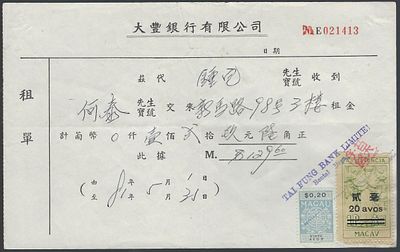 大豐銀行有限公司
№E021413
日期
茲代 鍾已 先生寶號 收到
何泰 先生寶號 交來 新馬路98号3樓 租金
計葡幣 0仟壹佰貳拾玖元陸角正
此據 M. $129.60
(由 81年5月1 至 31日)
租單
TAI FUNG BANK LIMITED
$0,20
MACAU
貳毫
20 avos
MACAU